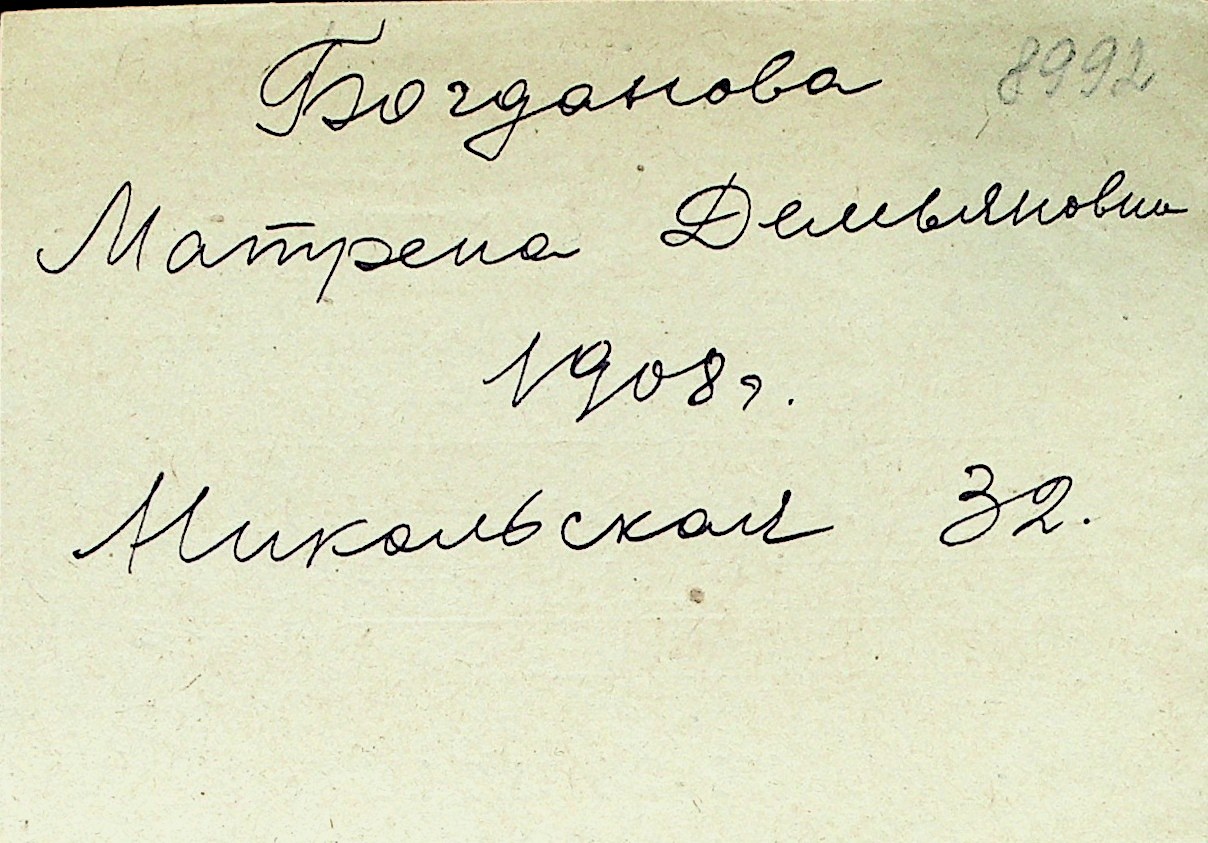 Богданова 8992
Матрена Демьяновна
1908 г.
Никольская 32.